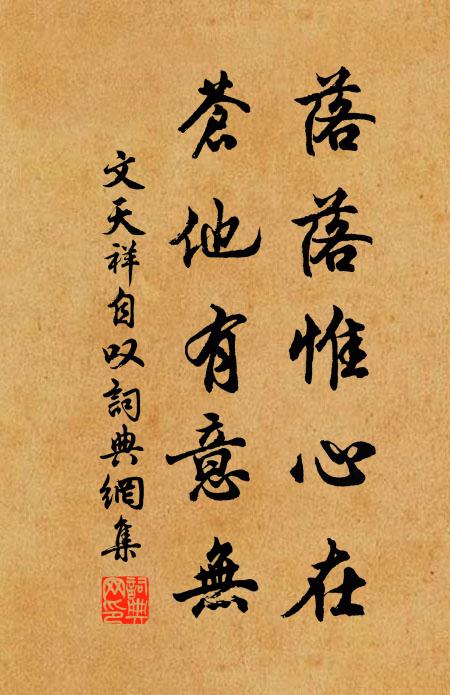 落落惟心在
蒼他有意無
文天祥自叹詞典網集
詞典网印